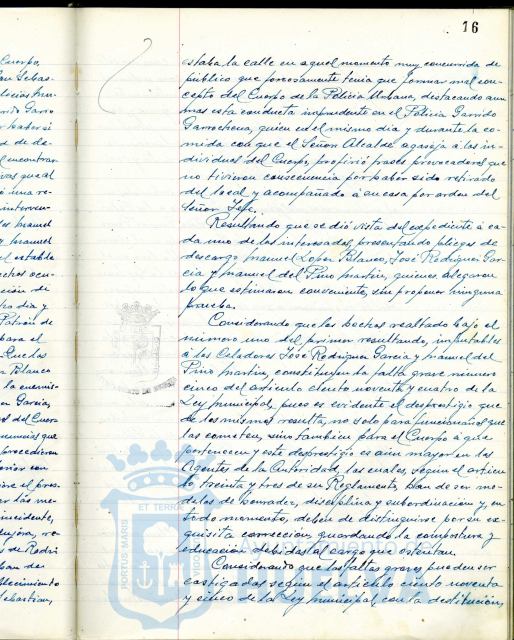 16
estaba la calle en aquel momento muy concurrida de
público que forzosamente tenía que formar mal con-
cepto del Cuerpo de la Policía Urbana, destacando aun
mas esta conducta imprudente en el Policía Garrido
Garrochena, quien en el mismo dia y durante la co-
mida con que el Señor Alcalde agasajó a los in-
dividuos del Cuerpo, profirió frases provocadoras que
no tuvieron consecuencia por haber sido retirado
del local y acompañado á su casa por orden del
Señor Jefe.
Resultando que se dió vista del expediente á ca-
da uno de los interesados, presentando pliegos de
descargo Manuel Lopez Blanco, José Rodriguez Gar-
cia y Manuel del Pino Martin, quienes alegaron
lo que estimaron conveniente, sin proponer ninguna
prueba.
Considerando que los hechos realtado bajo el
número uno del primer resultando, imputables
á los Celadores José Rodriguez Garcia y Manuel del
Pino Martin, constituyen la falta grave número
cinco del articulo ciento noventa y cuatro de la
Ley Municipal, pues es evidente el desprestigio que
de los mismos resulta, no solo para funcionarios que
las cometen, sino tambien para el Cuerpo á que
pertenecen y este desprestigio es aun mayor en los
Agentes de la Autoridad, los cuales, según el articu-
lo treinta y tres de su Reglamento, han de ser mo-
delos de honradez, disciplina y subordinacion y, en
todo momento, deben de distinguirse por su ex-
quisita corrección, guardando la compostura y
educacion debidas al cargo que ostentan.
Considerando que las faltas graves pueden ser
castigadas según el articulo ciento noventa
y cinco de la Ley Municipal, con la destitución,
ET TERRA
PORTUS MARIS